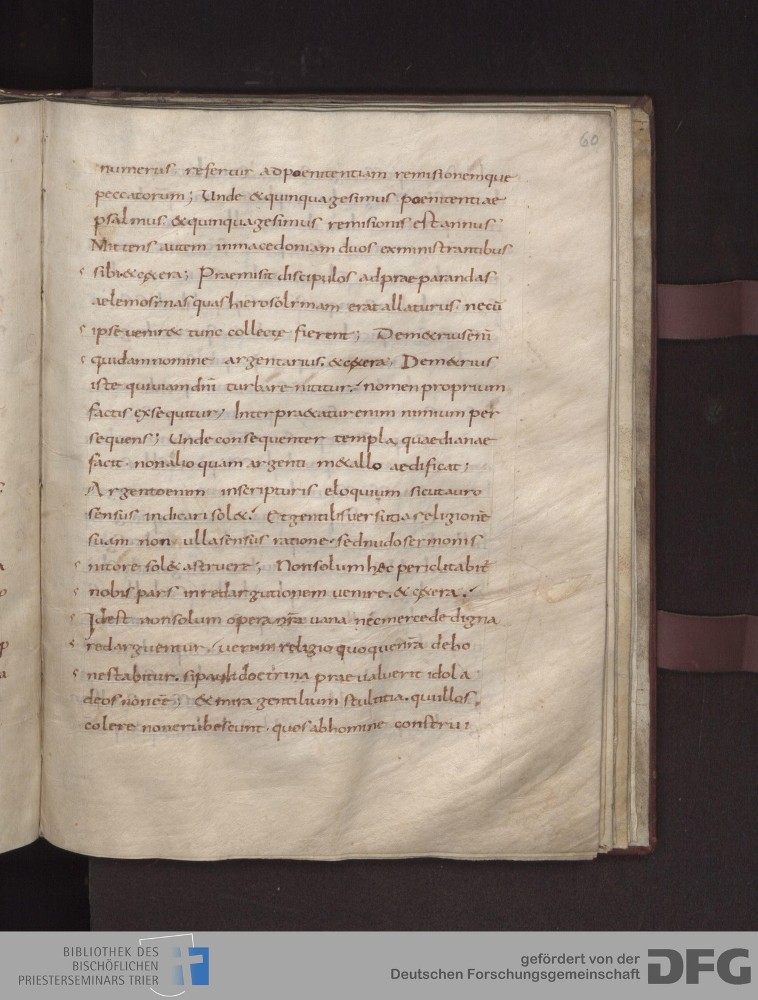 60
numerus refertur ad poenitentiam remissionemque
peccatorum; Unde & quinquagesimus poenitentiae
psalmus & quinquagesimus remissionis est annus
Mittens autem in macedoniam duos ex ministrantibus
sibi & cetera; Praemisit discipulos ad praeparandas
aelemosinas quas hierosolimam erat allaturus necū
ipse venir& tunc collecte fierent; Dem&rius enī
quidam nomine argentarius. & cetera; Dem&rius
iste qui viam dnī turbare nititur. nomen proprium
factis exsequitur; Interpra&atur enim nimium per
sequens; Unde consequenter templa quae dianae
facit. non alio quam argenti m&allo aedificat;
Argento enim in scripturis eloquium sicut auro
sensus indicari sol&; Et gentilis versutia religionē
suam non ulla sensus ratione. sed nudo sermonis
nitore sol& astruere; Non solum hęc periclitabit
nobis pars in redargutionem venire. & cetera;
Id est non solum opera nrā vana nec mercede digna
redarguentur. verum religio quoque nrā deho
nestabitur. si pauli doctrina praevaluerit idola
deos non eē; & mira gentilium stultitia. qui illos
colere non erubescunt. quos ab homine constru
BIBLIOTHEK DES
BISCHÖFLICHEN
PRIESTERSEMINARS TRIER
gefördert von der
Deutschen Forschungsgemeinschaft
DFG